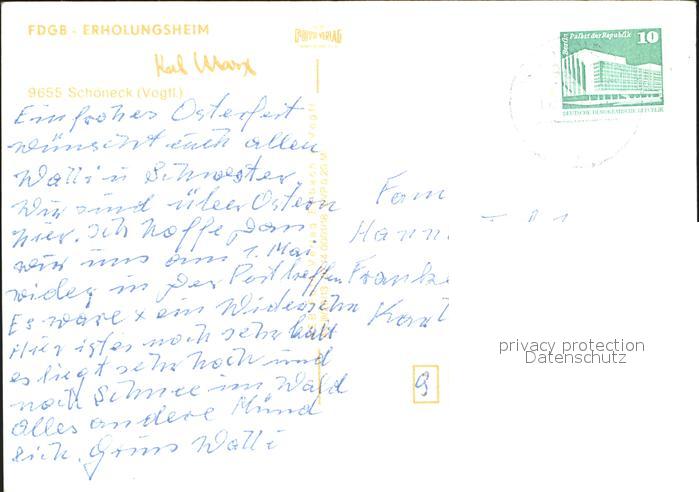 FDGB - ERHOLUNGSHEIM
Karl Marx
9655 Schöneck (Vogtl.)
Ein frohes Osterfest
wünscht euch allen
Walli u Schwester.
Wir sind über Ostern
hier. Ich hoffe dan
wir uns am 1. Mai
wider in der Post treffen
Es wäre x ein Widersehn
Hier ist es noch sehr kalt
es liegt sehr hoch und
noch Schnee im Wald
alles andere Münd
lich. Gruss Walli
Berlin Palast der Republik 10
DEUTSCHE DEMOKRATISCHE REPUBLIK
Fam
Hann
Franke
Karl
privacy protection
Datenschutz
9